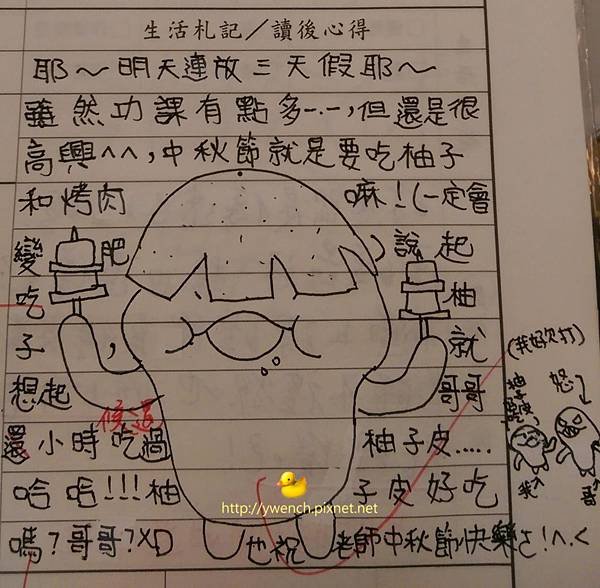 生活札記／讀後心得
耶～明天連放三天假耶～
雖然功課有點多-.-,但還是很
高興^^,中秋節就是要吃柚子
和烤肉 嘛!(一定會
變肥) 說起
吃 柚
子, 就
想起 哥哥
候還
還小時吃過 柚子皮.....
哈哈!!!柚 子皮好吃
嗎?哥哥?XD 也祝 老師中秋節快樂ㄛ!^.<
(我好欠打)
怒
我
哥
http://ywench.pixnet.net